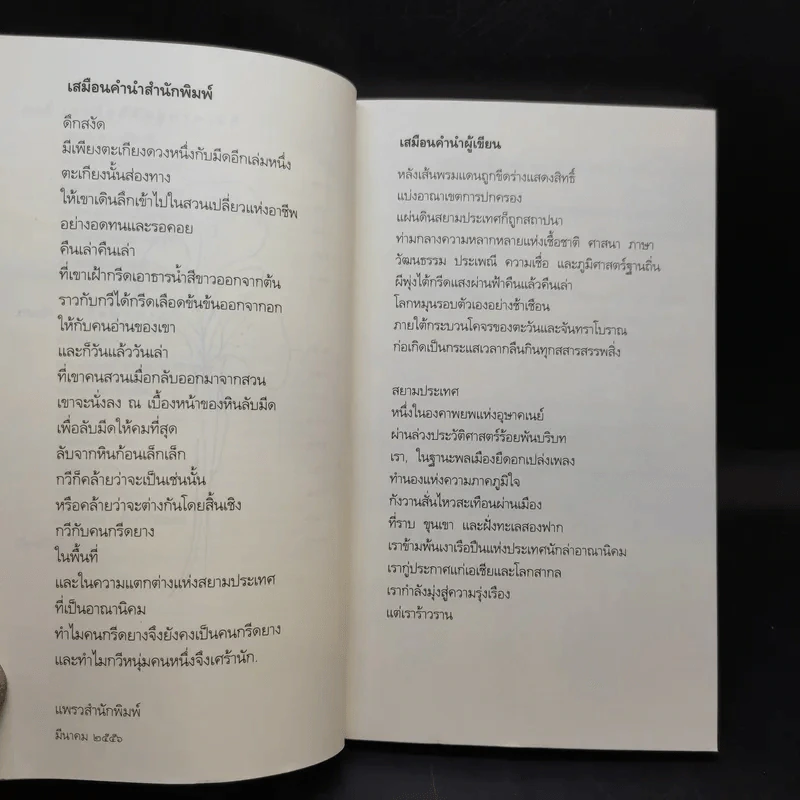 เสมือนคำนำสำนักพิมพ์
ดึกสงัด
มีเพียงตะเกียงดวงหนึ่งกับมีดอีกเล่มหนึ่ง
ตะเกียงนั้นส่องทาง
ให้เขาเดินลึกเข้าไปในสวนเปลี่ยวแห่งอาชีพ
อย่างอดทนและรอคอย
คืนเล่าคืนเล่า
ที่เขาเฝ้ากรีดเอาธารน้ำสีขาวออกจากต้น
ราวกับกวีได้กรีดเลือดข้นข้นออกจากอก
ให้กับคนอ่านของเขา
และก็วันแล้ววันเล่า
ที่เขาคนสวนเมื่อกลับออกมาจากสวน
เขาจะนั่งลง ณ เบื้องหน้าของหินลับมีด
เพื่อลับมีดให้คมที่สุด
ลับจากหินก้อนเล็กเล็ก
กวีก็คล้ายว่าจะเป็นเช่นนั้น
หรือคล้ายว่าจะต่างกันโดยสิ้นเชิง
กวีกับคนกรีดยาง
ในพื้นที่
และในความแตกต่างแห่งสยามประเทศ
ที่เป็นอาณานิคม
ทำไมคนกรีดยางจึงยังคงเป็นคนกรีดยาง
และทำไมกวีหนุ่มคนหนึ่งจึงเศร้านัก.
แพรวสำนักพิมพ์
มีนาคม ๒๕๕๖
เสมือนคำนำผู้เขียน
หลังเส้นพรมแดนถูกขีดร่างแสดงสิทธิ์
แบ่งอาณาเขตการปกครอง
แผ่นดินสยามประเทศก็ถูกสถาปนา
ท่ามกลางความหลากหลายแห่งเชื้อชาติ ศาสนา ภาษา
วัฒนธรรม ประเพณี ความเชื่อ และภูมิศาสตร์ฐานถิ่น
ผีพุ่งไต้กรีดแสงผ่านฟ้าคืนแล้วคืนเล่า
โลกหมุนรอบตัวเองอย่างช้าเชือน
ภายใต้กระบวนโคจรของตะวันและจันทราโบราณ
ก่อเกิดเป็นกระแสเวลากลืนกินทุกสสารสรรพสิ่ง
สยามประเทศ
หนึ่งในองคาพยพแห่งอุษาคเนย์
ผ่านล่วงประวัติศาสตร์ร้อยพันบริบท
เรา, ในฐานะพลเมืองยืดอกเปล่งเพลง
ทำนองแห่งความภาคภูมิใจ
กังวานสั่นไหวสะเทือนผ่านเมือง
ที่ราบ ขุนเขา และฝั่งทะเลสองฟาก
เราข้ามพ้นเงาเรือปืนแห่งประเทศนักล่าอาณานิคม
เรากู่ประกาศแก่เอเชียและโลกสากล
เรากำลังมุ่งสู่ความรุ่งเรือง
แต่เราร้าวราน